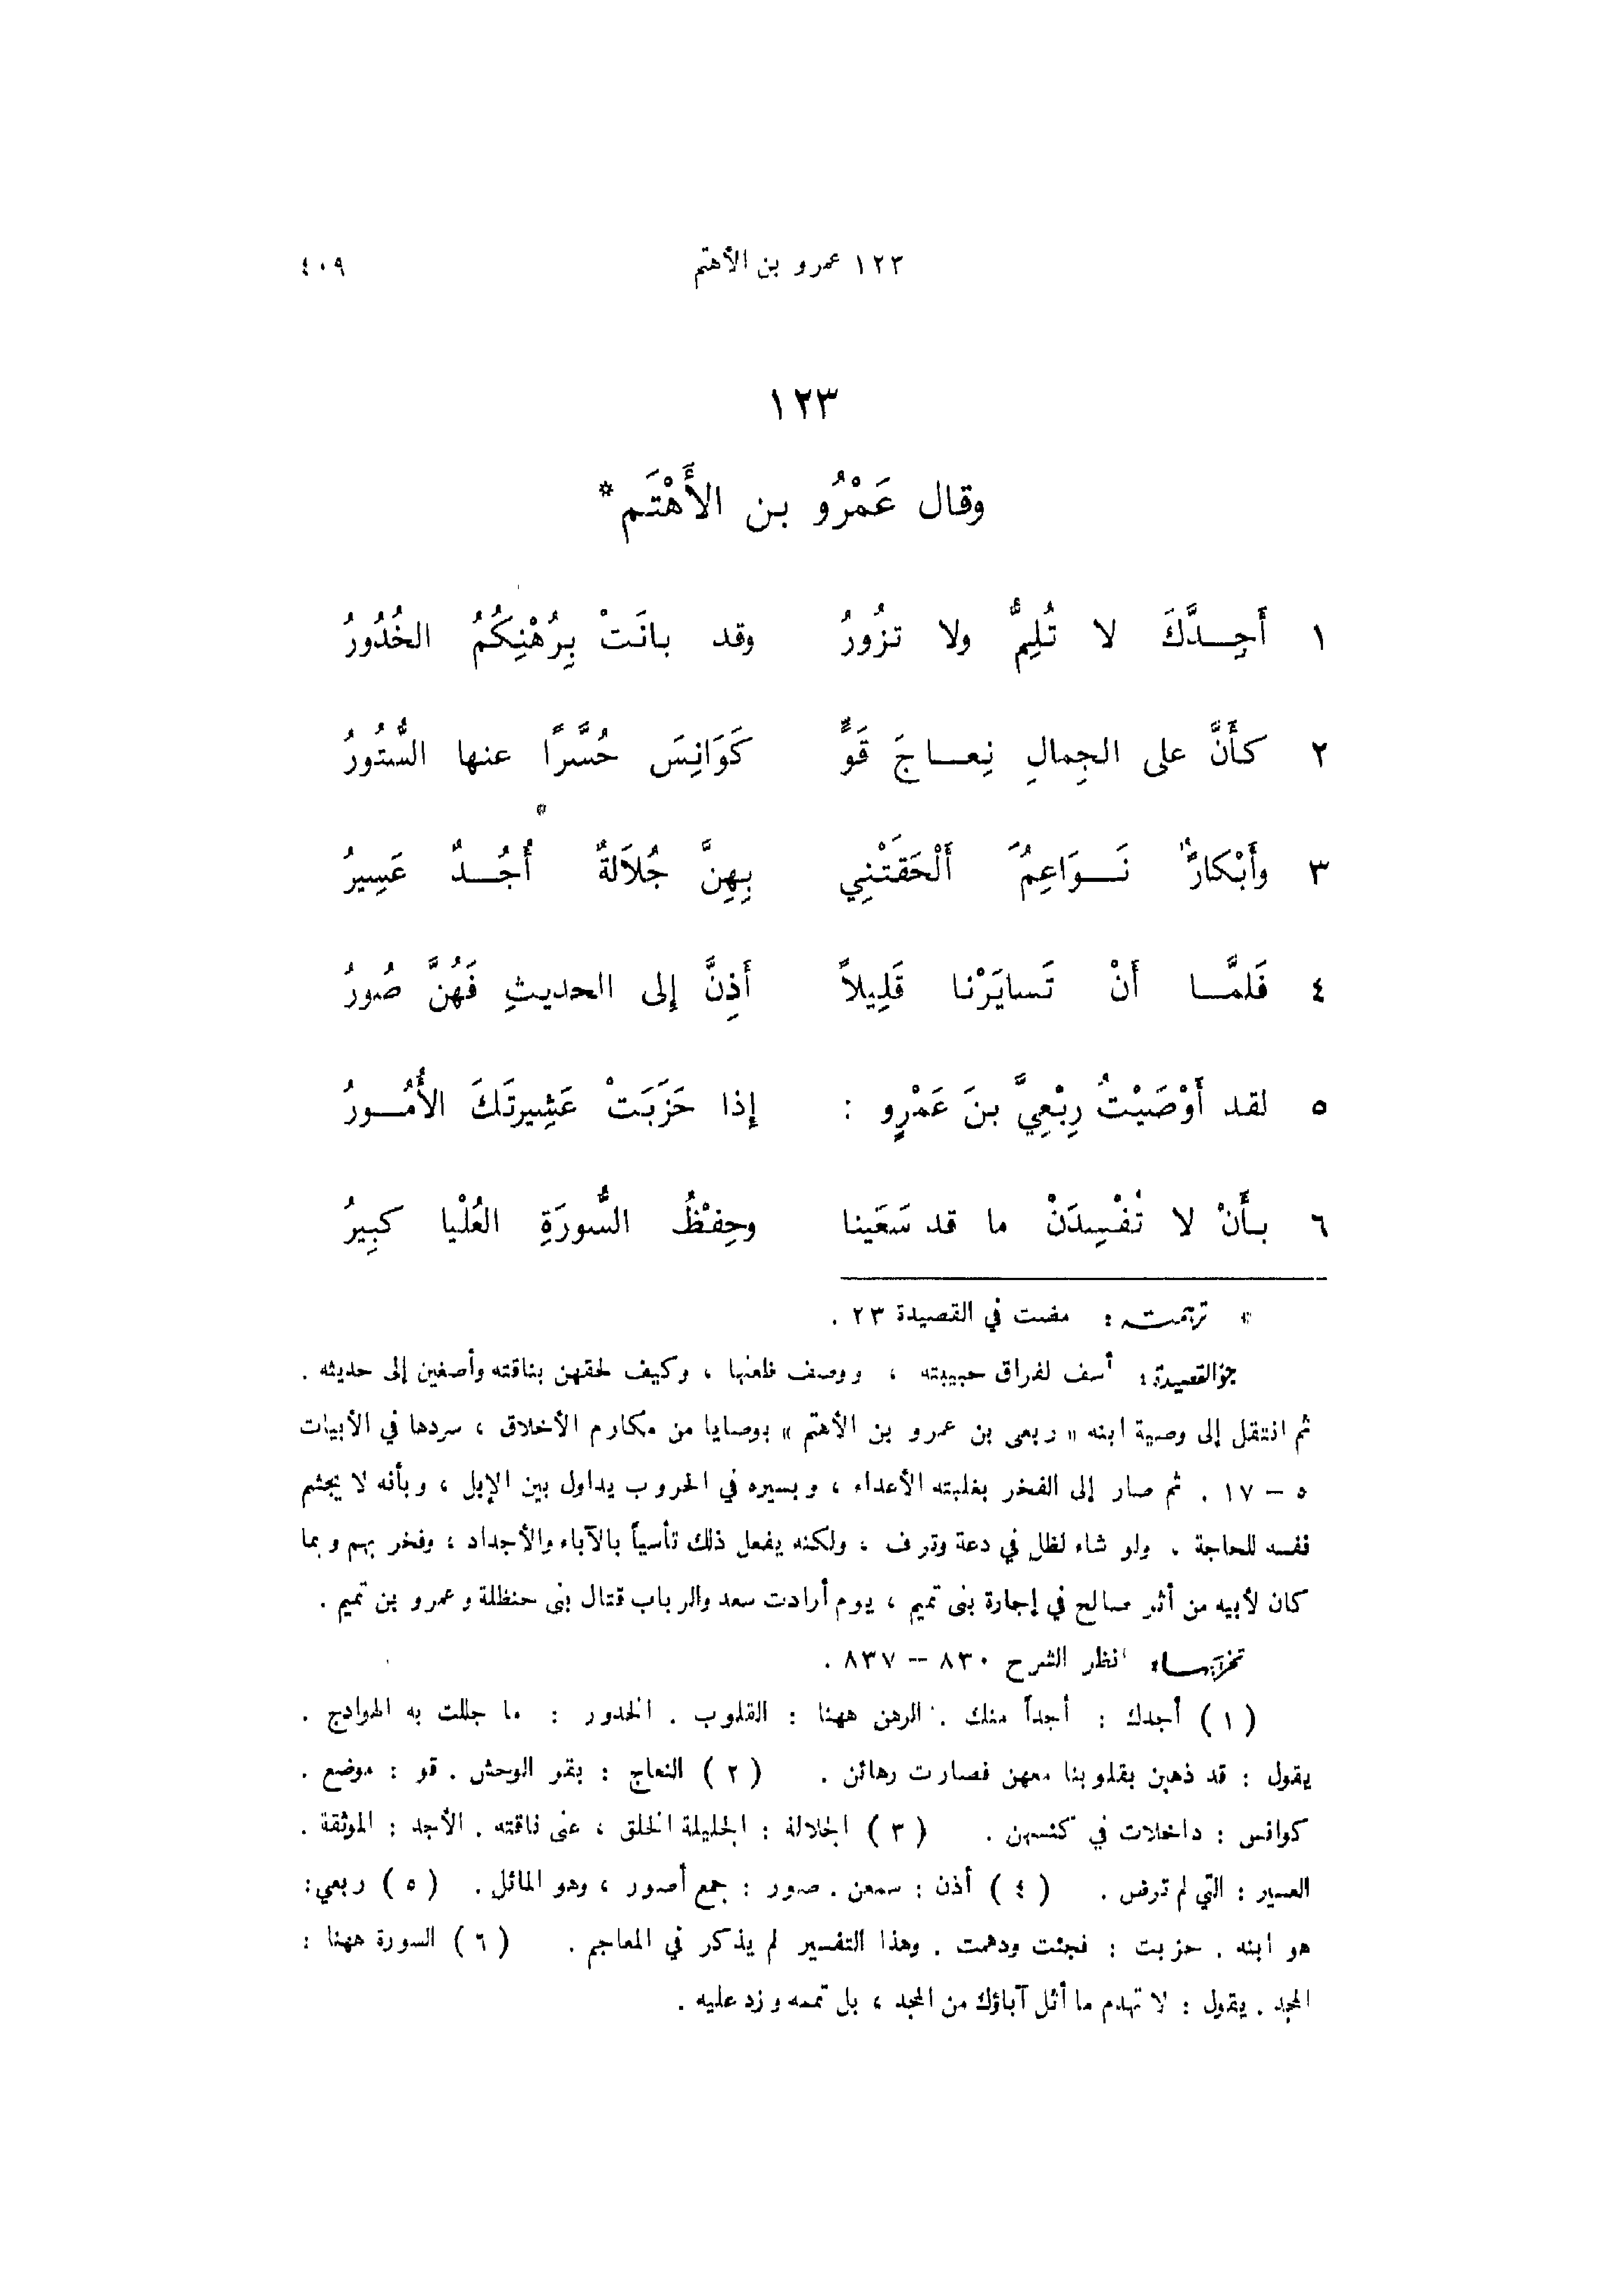 ١٢٣ عمرو بن الأهتم ٤٠٩
١٢٣
وقال عَمْرُو بن الأَهْتَم*
١ أَجِـدَّكَ لا تُلِمُّ ولا تزُورُ وقد بانَتْ بِرُهْنِكُمُ الخُدُورُ
٢ كأَنَّ على الجِمالِ نِعـاجَ قَوٍّ كَوَانِسَ حُسَّرًا عنها السُّتُورُ
٣ وأَبْكارٌ نَـوَاعِمُ أَلْحَقَتْنِي بِهِنَّ جُلاَلةٌ أُجُـدٌ عَسِيرُ
٤ فَلمَّـا أَنْ تَسايَرْنا قَلِيلاً أَذِنَّ إلى الحديثِ فَهُنَّ صُورُ
٥ لقد أَوْصَيْتُ رِبْعِيَّ بنَ عَمْرٍو : إذا حَزَبَتْ عَشِيرتَكَ الأُمُـورُ
٦ بأَنْ لا تُفْسِدَنْ ما قد سَعَينا وحِفْظُ السُّورَةِ العُلْيا كبِيرُ
* ترجمته : مضت في القصيدة ٢٣ .
جو القصيدة : أسف لفراق حبيبته ، ووصف ظعنها ، وكيف لحقهن بناقته وأصغين إلى حديثه .
ثم انتقل إلى وصية ابنه « ربعى بن عمرو بن الأهتم » بوصايا من مكارم الأخلاق ، سردها في الأبيات
٥ – ١٧ . ثم صار إلى الفخر بغلبته الأعداء ، وبسيره في الحروب يداول بين الإبل ، وبأنه لا يجشم
نفسه للحاجة . ولو شاء لظل في دعة وترف ، ولكنه يفعل ذلك تأسياً بالآباء والأجداد ، وفخر بهم وبما
كان لأبيه من أثر صالح في إجارة بنى تميم ، يوم أرادت سعد والرباب قتال بنى حنظلة وعمرو بن تميم .
تخريجها : انظر الشرح ٨٣٠ – ٨٣٧ .
( ١ ) أجدك : أجداً منك . الرهن ههنا : القلوب . الخدور : ما جللت به الهوادج .
يقول : قد ذهبن بقلوبنا معهن فصارت رهائن . ( ٢ ) النعاج : بقر الوحش . قو : موضع .
كوانس : داخلات في كنسهن . ( ٣ ) الجلالة : الجليلة الخلق ، عنى ناقته . الأجد : الموثقة .
العسير : التي لم ترض . ( ٤ ) أذن : سمعن . صور : جمع أصور ، وهو المائل . ( ٥ ) ربعي :
هو ابنه . حزبت : فجئت ودهمت . وهذا التفسير لم يذكر في المعاجم . ( ٦ ) السورة ههنا :
المجد . يقول : لا تهدم ما أثل آباؤك من المجد ، بل تممه وزد عليه .